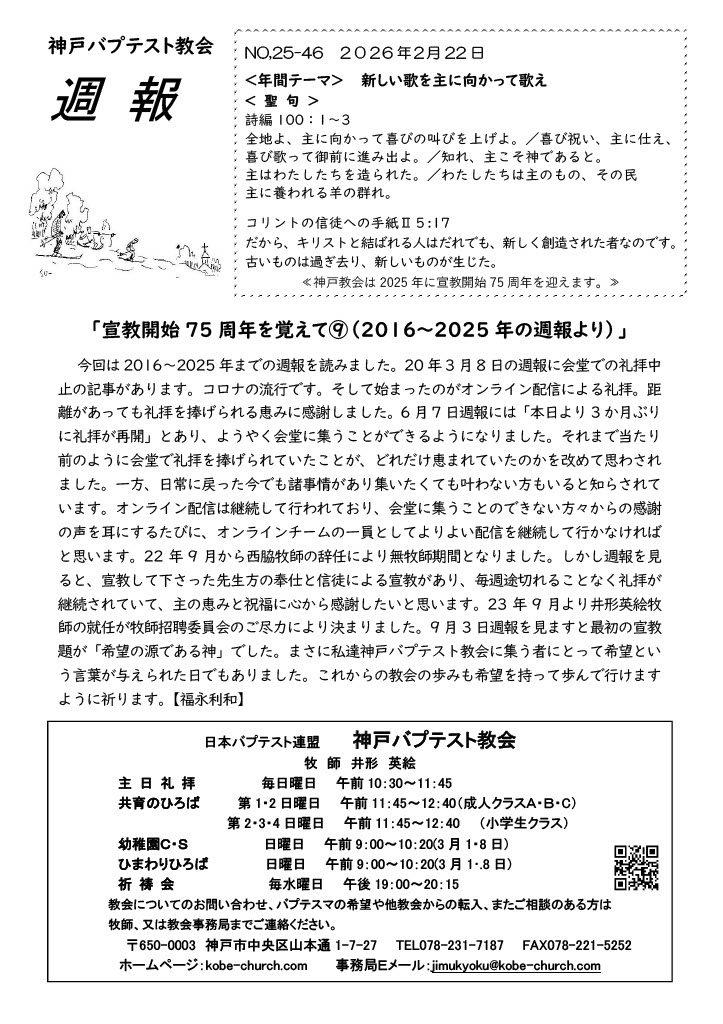 神戸バプテスト教会
週 報
NO,25-46 2026年2月22日
<年間テーマ> 新しい歌を主に向かって歌え
< 聖 句 >
詩編100：1~3
全地よ、主に向かって喜びの叫びを上げよ。／喜び祝い、主に仕え、
喜び歌って御前に進み出よ。／知れ、主こそ神であると。
主はわたしたちを造られた。／わたしたちは主のもの、その民
主に養われる羊の群れ。
コリントの信徒への手紙Ⅱ5:17
だから、キリストと結ばれる人はだれでも、新しく創造された者なのです。
古いものは過ぎ去り、新しいものが生じた。
≪神戸教会は2025年に宣教開始75周年を迎えます。≫
「宣教開始75周年を覚えて⑨（2016～2025年の週報より）」
今回は2016～2025年までの週報を読みました。20年3月8日の週報に会堂での礼拝中
止の記事があります。コロナの流行です。そして始まったのがオンライン配信による礼拝。距
離があっても礼拝を捧げられる恵みに感謝しました。6月7日週報には「本日より3か月ぶり
に礼拝が再開」とあり、ようやく会堂に集うことができるようになりました。それまで当たり
前のように会堂で礼拝を捧げられていたことが、どれだけ恵まれていたのかを改めて思わされ
ました。一方、日常に戻った今でも諸事情があり集いたくても叶わない方もいると知らされて
います。オンライン配信は継続して行われており、会堂に集うことのできない方々からの感謝
の声を耳にするたびに、オンラインチームの一員としてよりよい配信を継続して行かなければ
と思います。22年9月から西脇牧師の辞任により無牧師期間となりました。しかし週報を見
ると、宣教して下さった先生方の奉仕と信徒による宣教があり、毎週途切れることなく礼拝が
継続されていて、主の恵みと祝福に心から感謝したいと思います。23年9月より井形英絵牧
師の就任が牧師招聘委員会のご尽力により決まりました。9月3日週報を見ますと最初の宣教
題が「希望の源である神」でした。まさに私達神戸バプテスト教会に集う者にとって希望とい
う言葉が与えられた日でもありました。これからの教会の歩みも希望を持って歩んで行けます
ように祈ります。【福永利和】
日本バプテスト連盟 神戸バプテスト教会
牧 師 井形 英絵
主 日 礼 拝 毎日曜日 午前10:30～11:45
共育のひろば 第1・2日曜日 午前11:45～12:40（成人クラスA・B・C）
第2・3・4日曜日 午前11:45～12:40 （小学生クラス）
幼稚園C・S 日曜日 午前9:00～10:20(3月1・8日）
ひまわりひろば 日曜日 午前9:00～10:20(3月1・.8日）
祈 祷 会 毎水曜日 午後19:00～20:15
教会についてのお問い合わせ、バプテスマの希望や他教会からの転入、またご相談のある方は
牧師、又は教会事務局までご連絡ください。
〒650-0003 神戸市中央区山本通1-7-27 TEL078-231-7187 FAX078-221-5252
ホームページ：kobe-church.com 事務局Eメール：jimukyoku@kobe-church.com